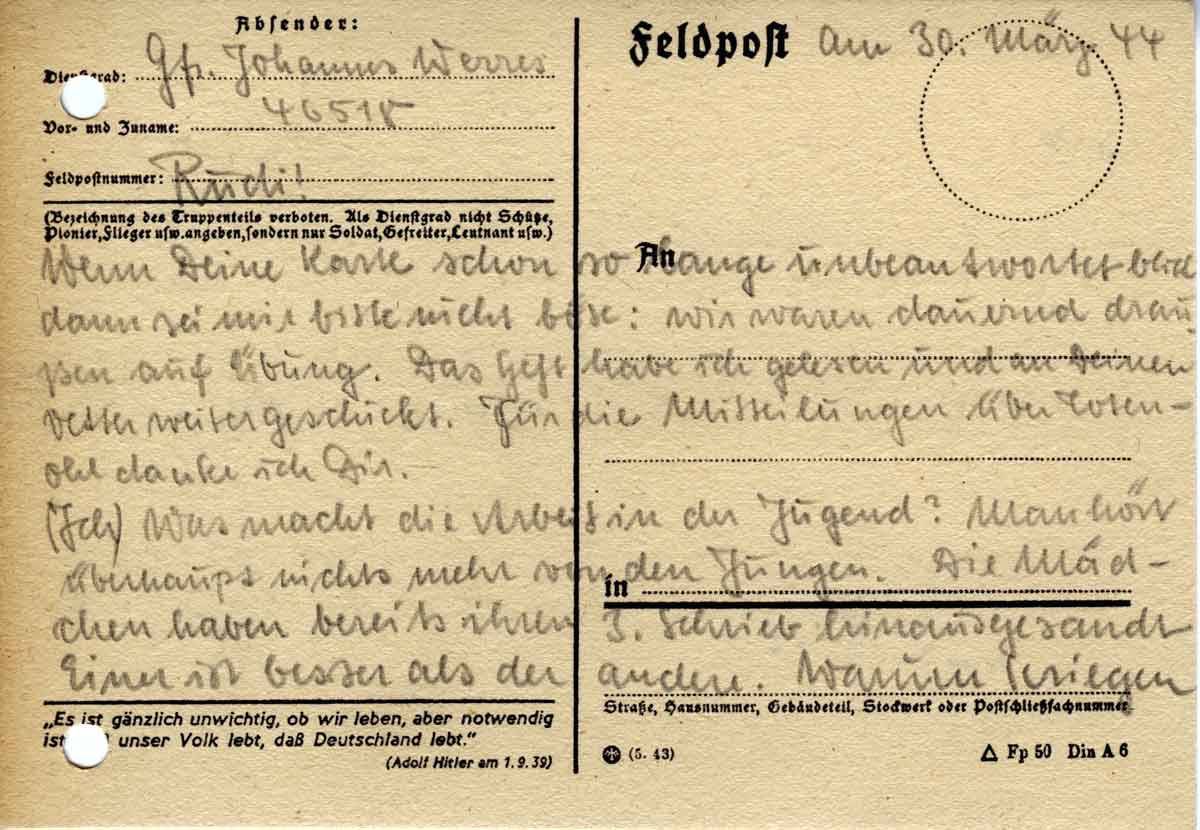 Absender:
Dienstgrad: Gfr. Johannes Werres
46518
Vor- und Zuname:
Feldpostnummer: Rudi!
(Bezeichnung des Truppenteils verboten. Als Dienstgrad nicht Schütze,
Pionier, Flieger usw. angeben, sondern nur Soldat, Gefreiter, Leutnant usw.)
Feldpost Am 30. März 44
An
Wenn Deine Karte schon so lange unbeantwortet blieb
dann sei mir bitte nicht böse: wir waren dauernd drau
ßen auf Übung. Das Heft habe ich gelesen und an Deinen
Vetter weitergeschickt. Für die Mitteilungen über
danke ich Dir.-
(Ich) Was macht die Arbeit in der Jugend? Man hört
überhaupt nichts mehr von den Jungen. Die Mäd-
in
chen haben bereits ihren 3. Schrieb hinausgesandt
Einer ist besser als der andere. Warum kriegen
Straße, Hausnummer, Gebäudeteil, Stockwerk oder Postschließfachnummer
„Es ist gänzlich unwichtig, ob wir leben, aber notwendig
ist unser Volk lebt, daß Deutschland lebt.“
(Adolf Hitler am 1.9.39)
(5. 43)
Fp 50 Din A 6